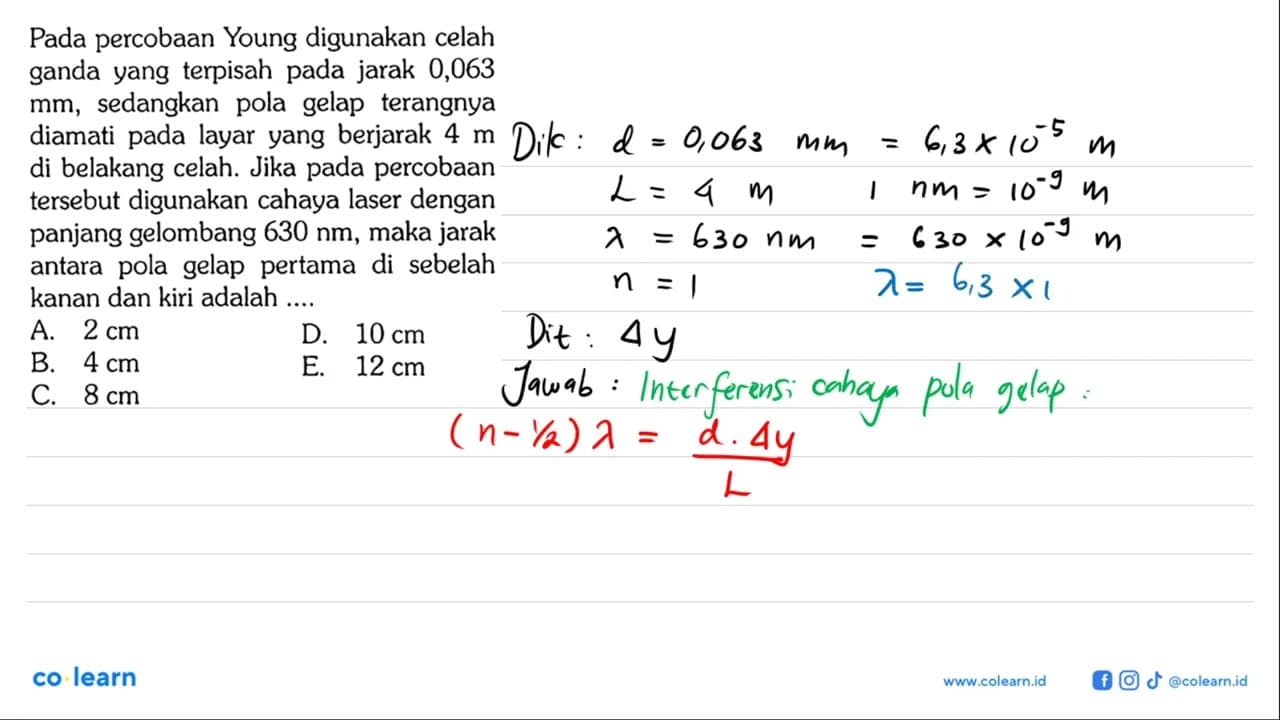 Pada percobaan Young digunakan celah
ganda yang terpisah pada jarak 0,063
mm, sedangkan pola gelap terangnya
diamati pada layar yang berjarak 4 m
di belakang celah. Jika pada percobaan
tersebut digunakan cahaya laser dengan
panjang gelombang 630 nm, maka jarak
antara pola gelap pertama di sebelah
kanan dan kiri adalah ....
A. 2 cm
B. 4 cm
C. 8 cm
D. 10 cm
E. 12 cm
Dik : d = 0,063 mm = 6,3 × 10⁻⁵ m
L = 4 m 1 nm = 10⁻⁹ m
λ = 630 nm = 630 × 10⁻⁹ m
n = 1 λ = 6,3 × 1
Dit : Δy
Jawab : Interferensi cahaya pola gelap :
(n - 1/2) λ = d . Δy / L
co learn
www.colearn.id
@colearn.id